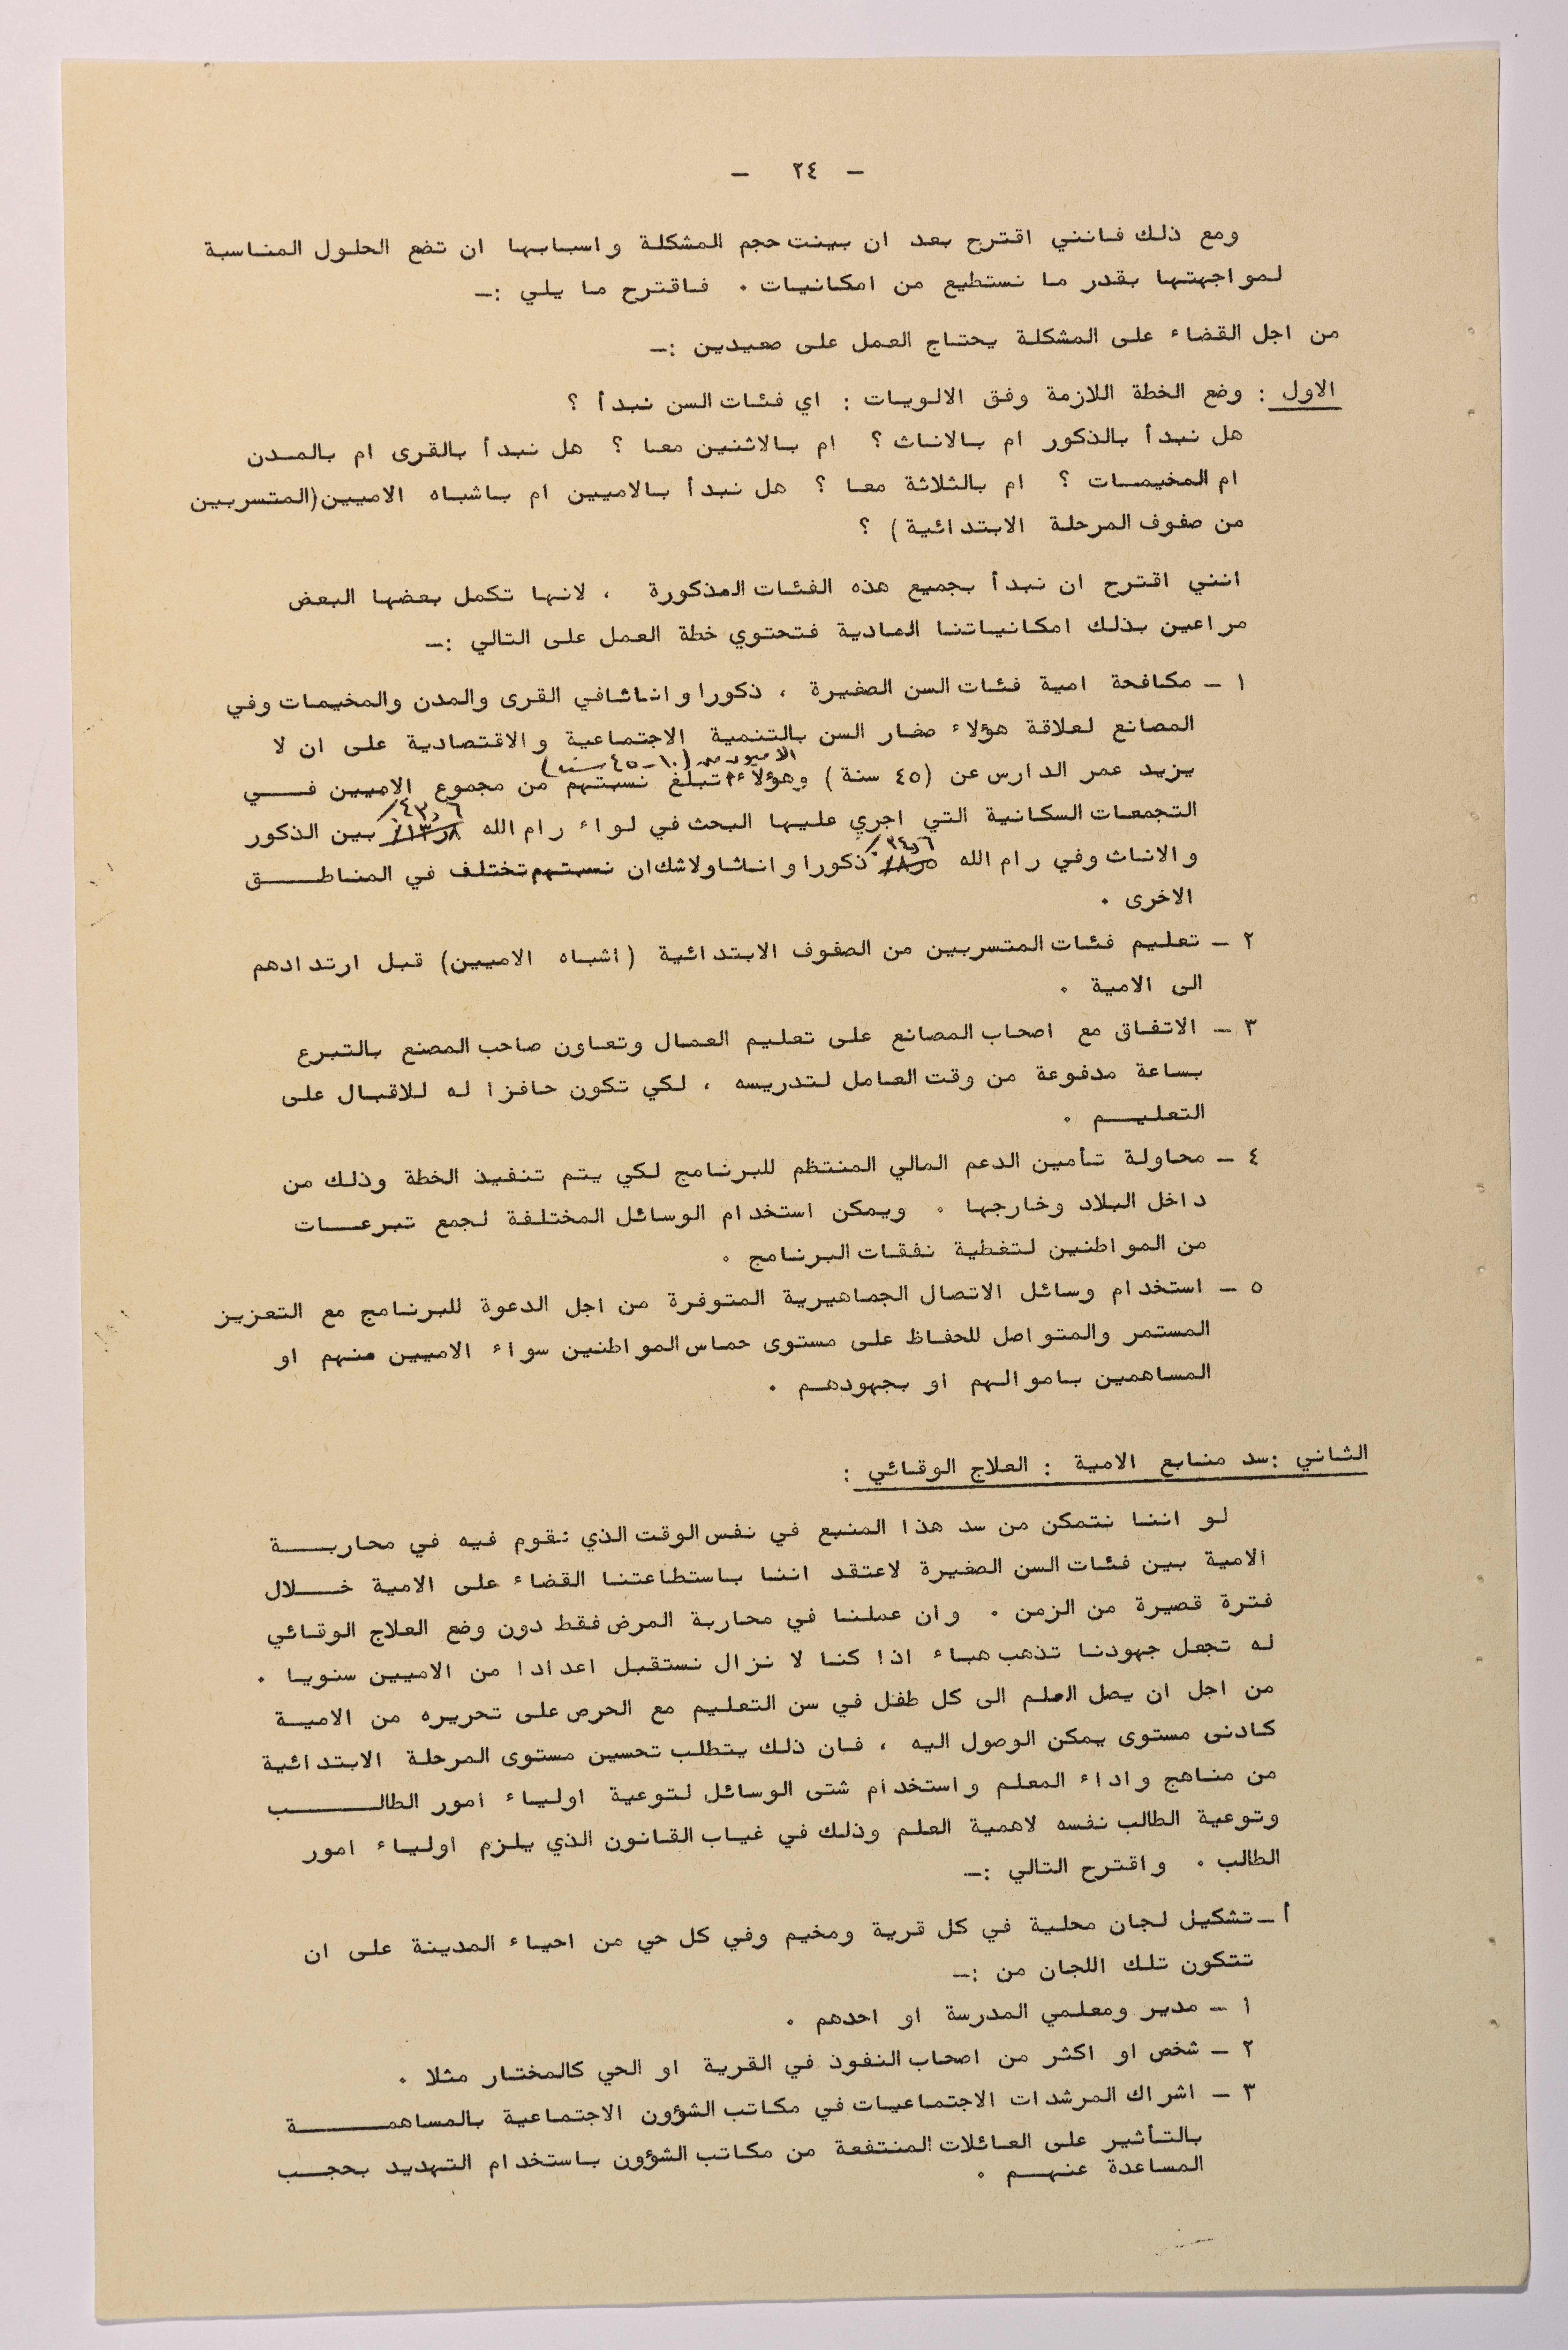 - ٢٤ -
ومع ذلك فانني اقترح بعد ان بينت حجم المشكلة واسبابها ان تضع الحلول المناسبة
لمواجهتها بقدر ما نستطيع من امكانيات ٠ فاقترح ما يلي :-
من اجل القضاء على المشكلة يحتاج العمل على صعيدين :-
الاول : وضع الخطة اللازمة وفق الالويات : اي فئات السن نبدأ ؟
هل نبدأ بالذكور ام بالاناث ؟ ام بالاثنين معا ؟ هل نبدأ بالقرى ام بالمدن
ام المخيمات ؟ ام بالثلاثة معا ؟ هل نبدأ بالاميين ام باشباه الاميين (المتسربين
من صفوف المرحلة الابتدائية ) ؟
انني اقترح ان نبدأ بجميع هذه الفئات المذكورة ، لانها تكمل بعضها البعض
مراعين بذلك امكانياتنا المادية فتحتوي خطة العمل على التالي :-
١ - مكافحة امية فئات السن الصغيرة ، ذكورا واناثا في القرى والمدن والمخيمات وفي
المصانع لعلاقة هؤلاء صغار السن بالتنمية الاجتماعية والاقتصادية على ان لا
الاميون من (١٠-٤٥ سنة)
يزيد عمر الدارس عن (٤٥ سنة ) وهؤلاء تبلغ نسبتهم من مجموع الاميين في
٤٢٫٦٪
التجمعات السكانية التي اجري عليها البحث في لواء رام الله ١٣٫٨٪ بين الذكور
٣٤٫٦٪
والاناث وفي رام الله ٨٫٥٪ ذكورا واناثا ولاشك ان نسبتهم تختلف في المناطق
الاخرى ٠
٢ - تعليم فئات المتسربين من الصفوف الابتدائية ( اشباه الاميين ) قبل ارتدادهم
الى الامية ٠
٣ - الاتفاق مع اصحاب المصانع على تعليم العمال وتعاون صاحب المصنع بالتبرع
بساعة مدفوعة من وقت العامل لتدريسه ، لكي تكون حافزا له للاقبال على
التعليم ٠
٤ - محاولة تأمين الدعم المالي المنتظم للبرنامج لكي يتم تنفيذ الخطة وذلك من
داخل البلاد وخارجها ٠ ويمكن استخدام الوسائل المختلفة لجمع تبرعات
من المواطنين لتغطية نفقات البرنامج ٠
٥ - استخدام وسائل الاتصال الجماهيرية المتوفرة من اجل الدعوة للبرنامج مع التعزيز
المستمر والمتواصل للحفاظ على مستوى حماس المواطنين سواء الاميين منهم او
المساهمين باموالهم او بجهودهم ٠
الثاني : سد منابع الامية : العلاج الوقائي :
لو اننا نتمكن من سد هذا المنبع في نفس الوقت الذي نقوم فيه في محاربة
الامية بين فئات السن الصغيرة لاعتقد اننا باستطاعتنا القضاء على الامية خلال
فترة قصيرة من الزمن ٠ وان عملنا في محاربة المرض فقط دون وضع العلاج الوقائي
له تجعل جهودنا تذهب هباء اذا كنا لا نزال نستقبل اعدادا من الاميين سنويا ٠
من اجل ان يصل العلم الى كل طفل في سن التعليم مع الحرص على تحريره من الامية
كادنى مستوى يمكن الوصول اليه ، فان ذلك يتطلب تحسين مستوى المرحلة الابتدائية
من مناهج واداء المعلم واستخدام شتى الوسائل لتوعية اولياء امور الطالب
وتوعية الطالب نفسه لاهمية العلم وذلك في غياب القانون الذي يلزم اولياء امور
الطالب ٠ واقترح التالي :-
أ - تشكيل لجان محلية في كل قرية ومخيم وفي كل حي من احياء المدينة على ان
تتكون تلك اللجان من :-
١ - مدير ومعلمي المدرسة او احدهم ٠
٢ - شخص او اكثر من اصحاب النفوذ في القرية او الحي كالمختار مثلا ٠
٣ - اشراك المرشدات الاجتماعيات في مكاتب الشؤون الاجتماعية بالمساهمة
بالتأثير على العائلات المنتفعة من مكاتب الشؤون باستخدام التهديد بحجب
المساعدة عنهم ٠